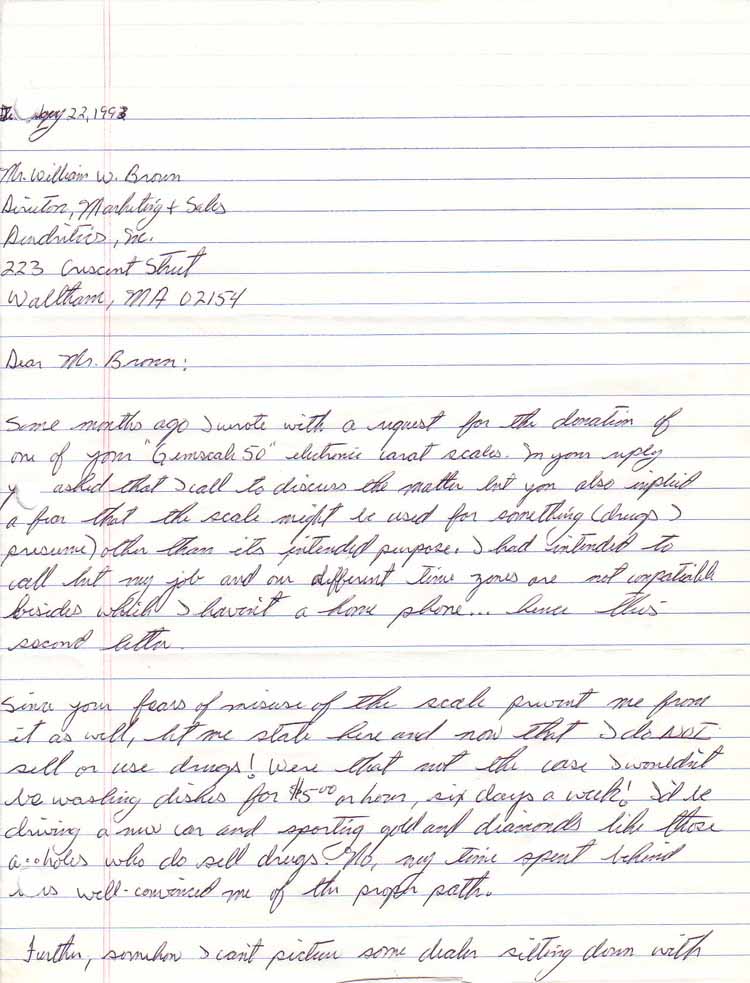 22, 1993
Mr. William W. Brown
Director, Marketing + Sales
Dendritics, Inc.
223 Crescent Street
Waltham, MA 02154
Dear Mr. Brown:
Some months ago I wrote with a request for the donation of
one of your "Gemscale 50" electronic carat scales. In your reply
y asked that I call to discuss the matter but you also implied
a fear that the scale might be used for something (drugs I
presume) other than its intended purpose. I had intended to
call but my job and our different time zones are not compatible
besides which I haven't a home phone... hence this
second letter.
Since your fears of misuse of the scale prevent me from
it as well, let me state here and now that I do NOT
sell or use drugs! Were that not the case I wouldn't
be washing dishes for $5.00 an hour, six days a week! I'd be
driving a new car and sporting gold and diamonds like those
a..holes who do sell drugs. No, my time spent behind
is well-convinced me of the proper path.
Further, somehow I can't picture some dealer sitting down with